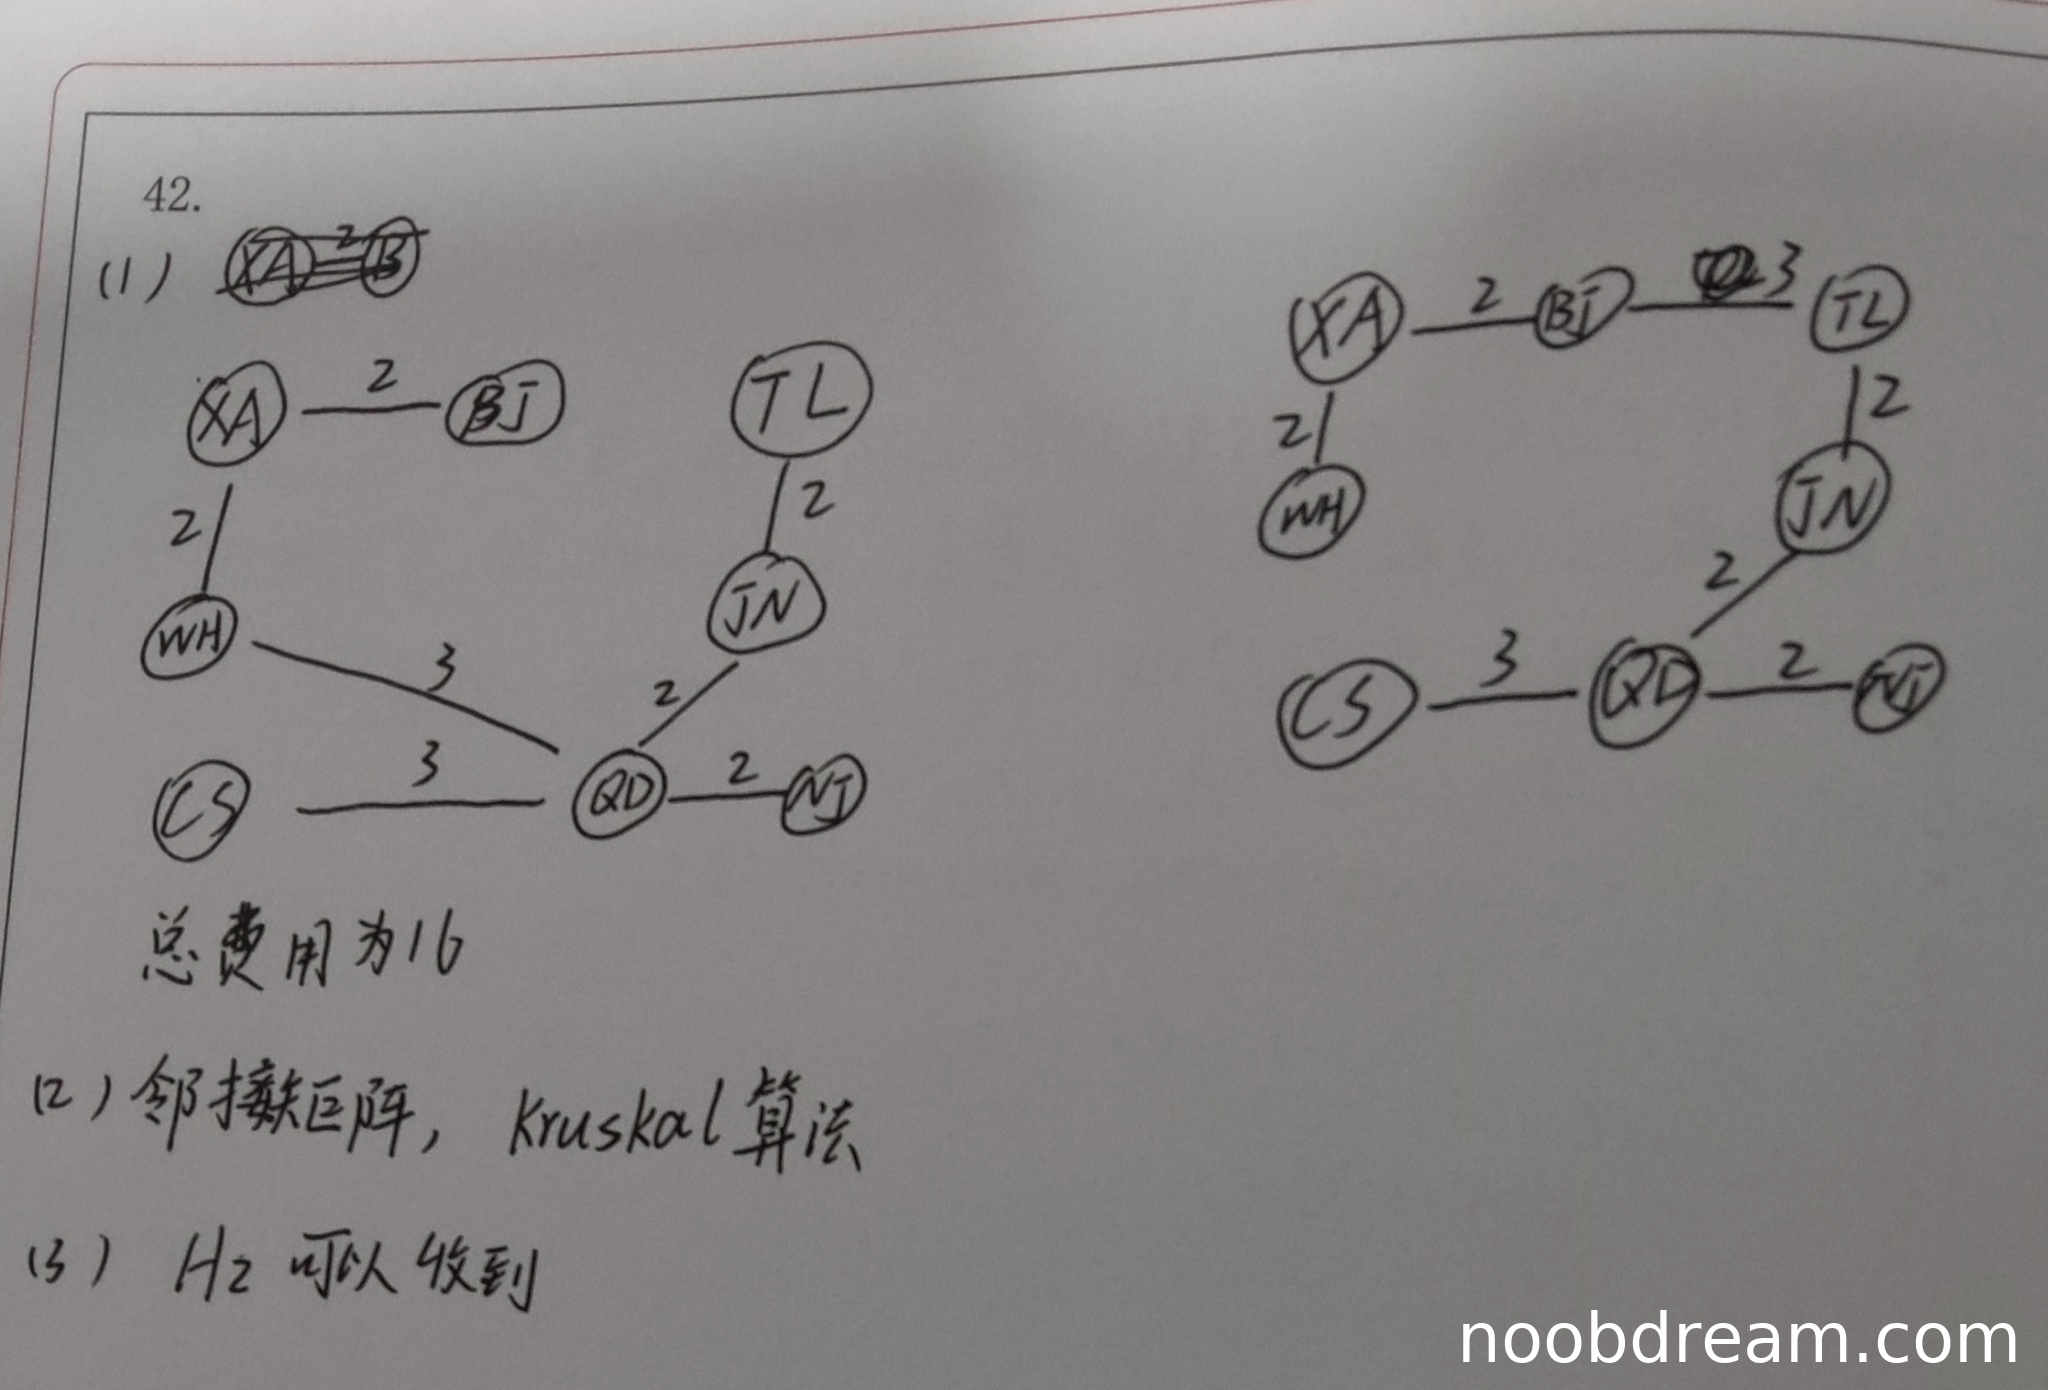 42.
(1)
XA 2 BJ TL
2 2
WH 3 JN
2
CS 3 QD 2 NJ
XA 2 BJ 3 TL
2 2
WH JN
2
CS 3 QD 2 NJ
总费用为16
(2) 邻接矩阵, Kruskal算法
(3) H2 可以收到
noobdream.com